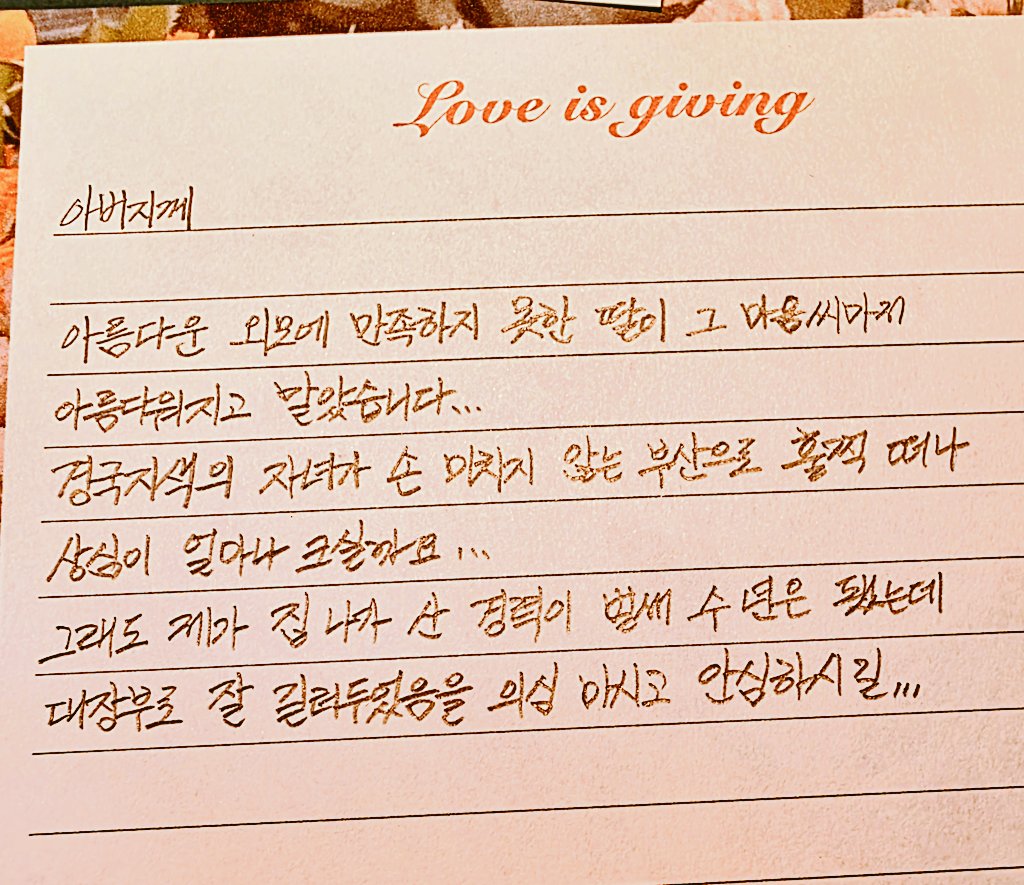 Love is giving
아버지께
아름다운 외모에 만족하지 못한 딸이 그 마음씨마저
아름다워지고 말았습니다...
경국지색의 자녀가 손 미치지 않는 부산으로 훌쩍 떠나
상심이 얼마나 크실까요...
그래도 제가 집 나가 산 경력이 벌써 수 년은 됐는데
대장부로 잘 길러두었음을 의심 마시고 안심하시길...